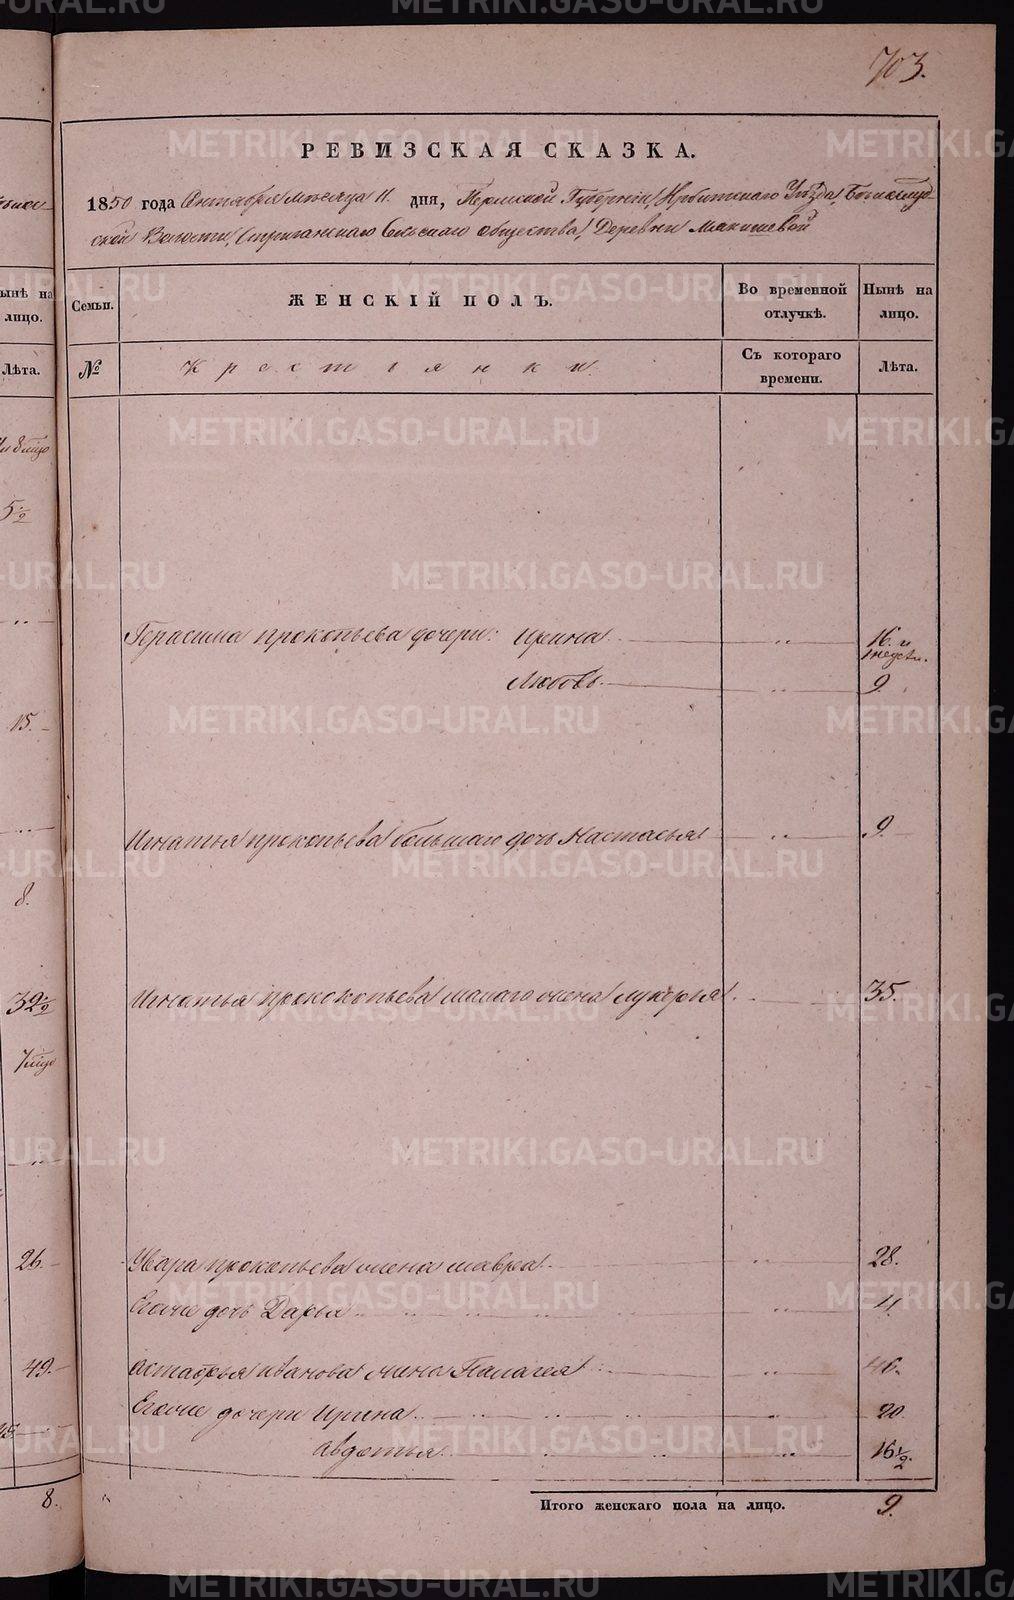 703.
РЕВИЗСКАЯ СКАЗКА.
1850 года Октября месяца 11. дня, Пермской Губерніи, Ирбитскаго Уѣзда,
ской Волости, Стриганскаго Сельскаго общества, Деревни Макишевой
Семьи.
ЖЕНСКІЙ ПОЛЪ.
Во временной отлучкѣ.
Нынѣ на лицо.
№
Крестьянки
Съ котораго времени.
Лѣта.
Герасима прокопьева дочери: Ирина .. 16. и 1 недели.
Любовь. .. 9.
Игнатья прокопьева большаго дочь Настасья .. 9.
Игнатья прококопьева малаго жена лукерья. .. 35.
Увара прокопьева жена мавра. .. 28.
Еговы дочь Дарья ..
астафья иванова жена Палагея .. 46.
Еговы дочери Ирина .. 20.
авдотья .. 16 1/2.
Итого женскаго пола на лицо. 9.
ынѣ на лицо.
Лѣта.
5 1/2
15.
8.
32 1/2
26.
49.
8.
METRIKI.GASO-URAL.RU